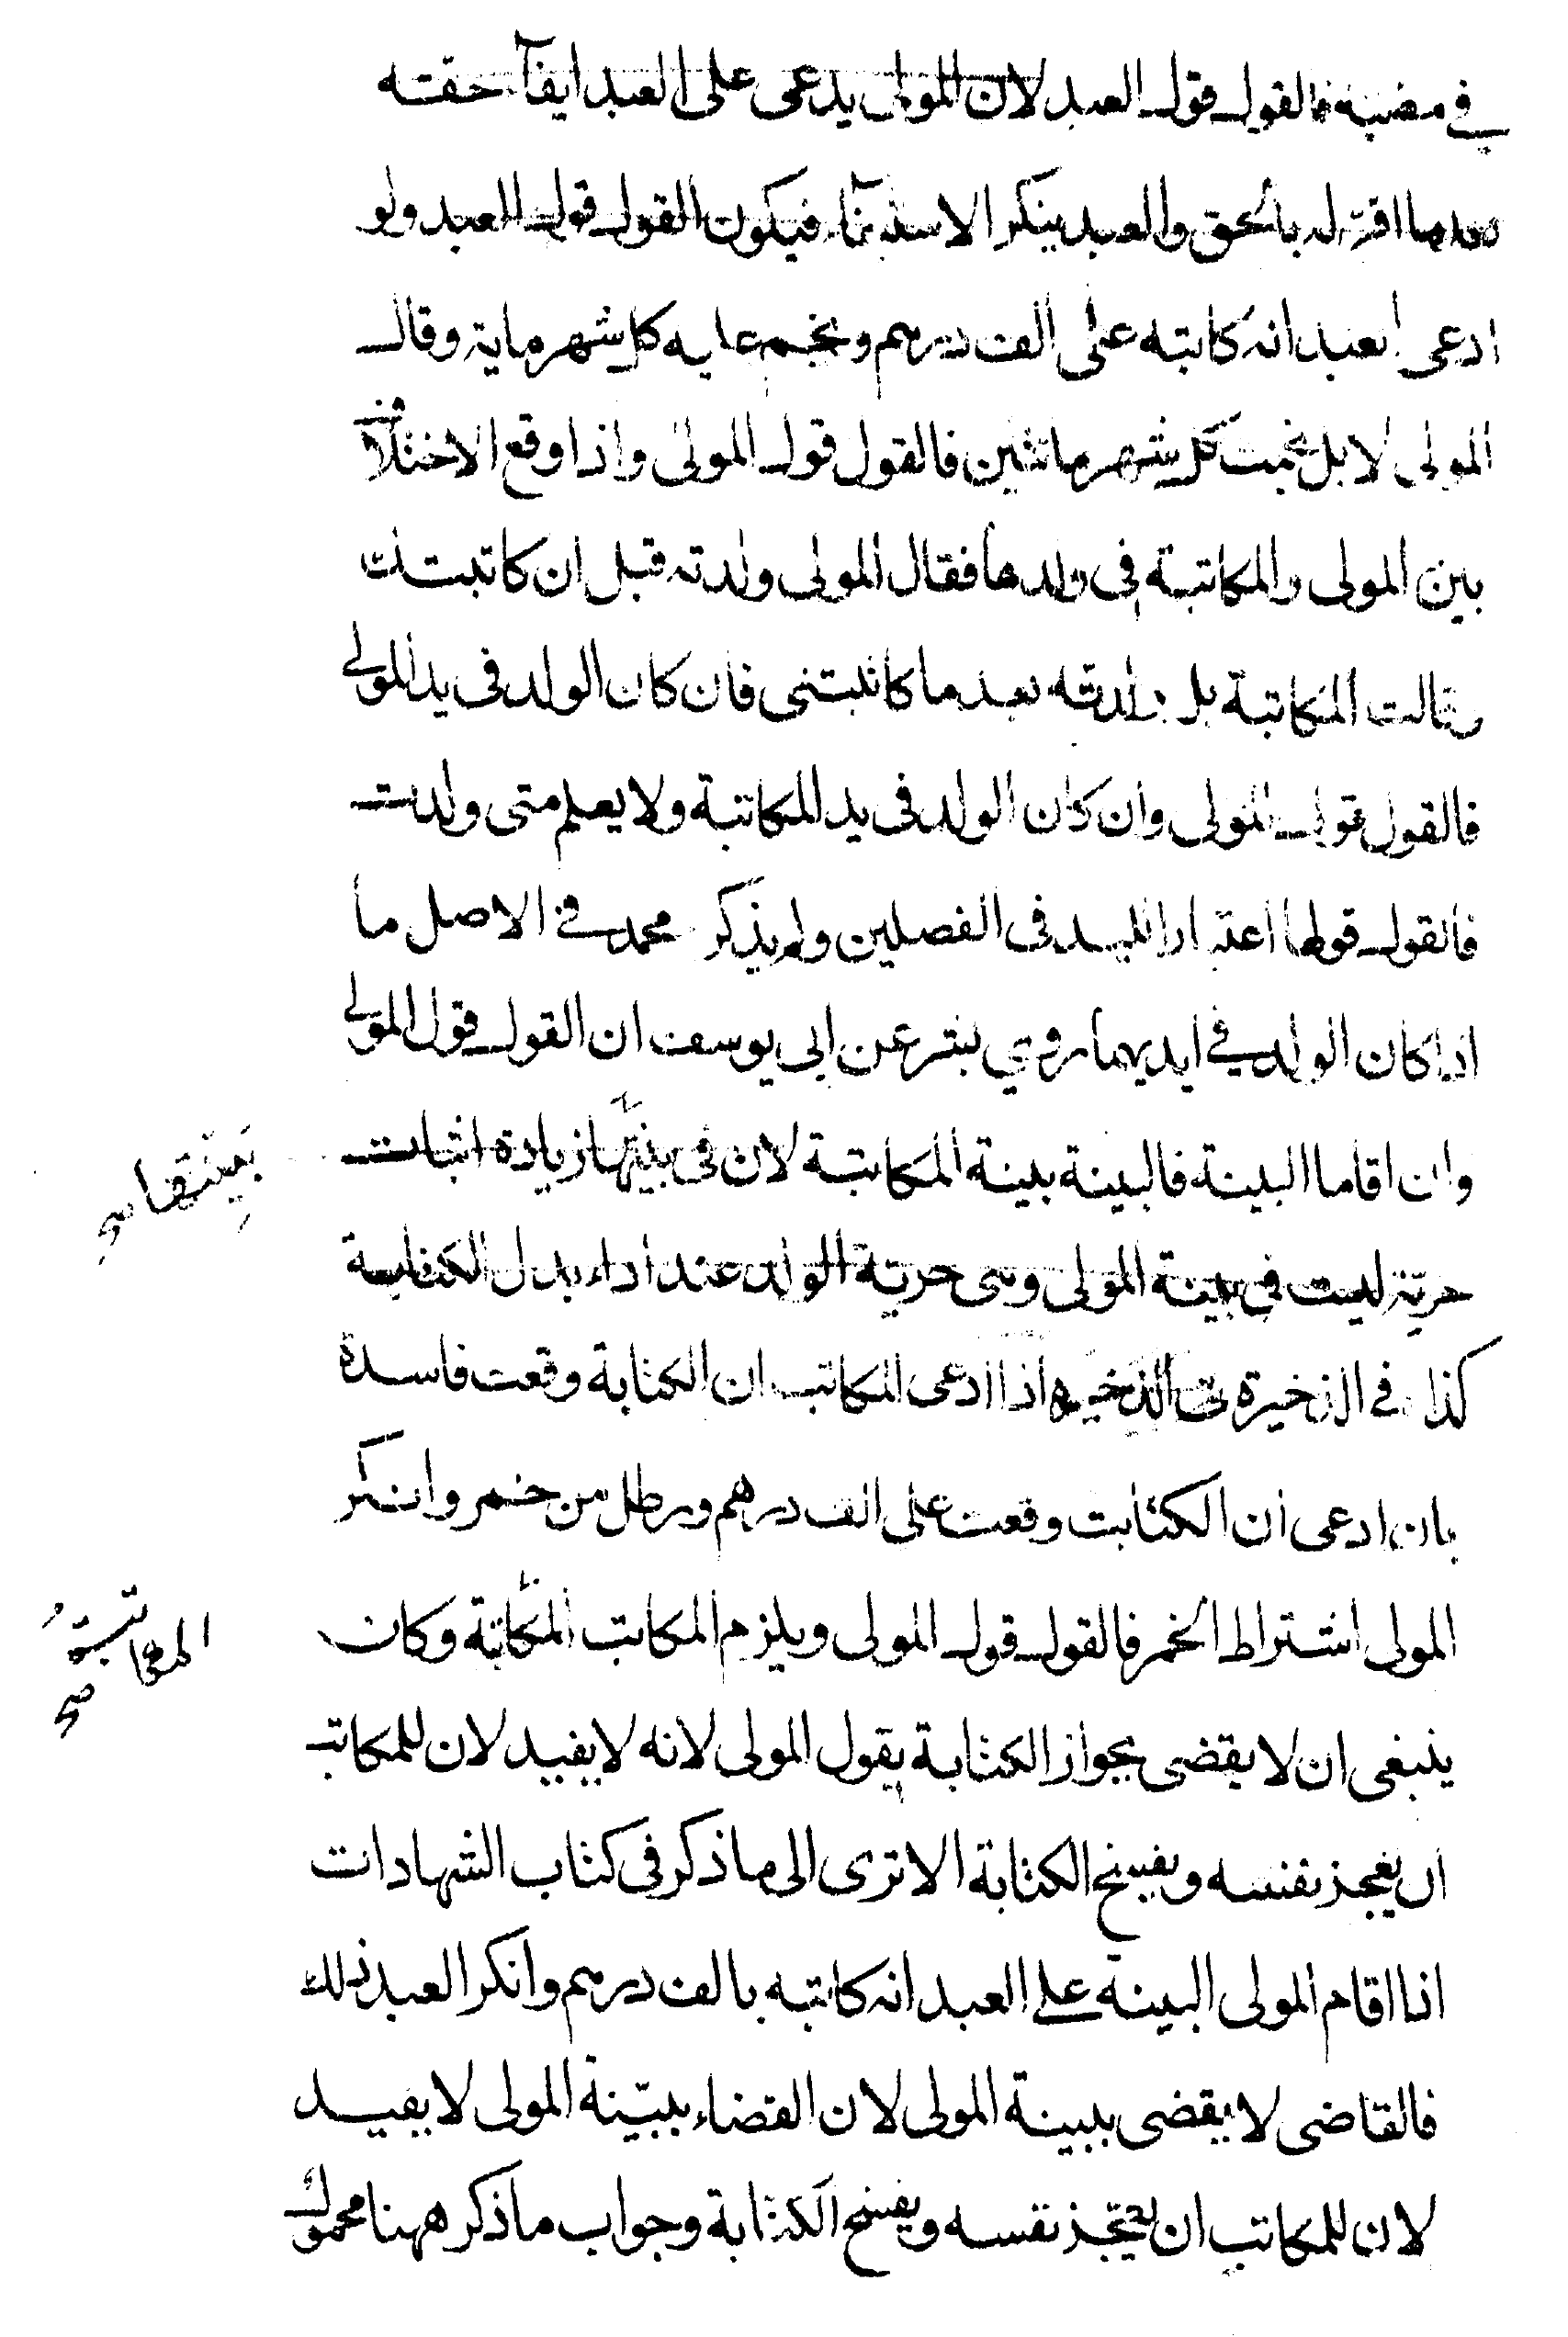 في مضيه فالقول قول العبد لان المولى يدعى على العبد ايفآء حقه
بعدما اقرّ له بالحق والعبد ينكر الاستـ فيكون القول قول العبد ولو
ادعى العبد انه كاتبه على الف درهم ونجم عليه كل شهر ماية وقال
المولى لا بل نجمت كل شهر مائتين فالقول قول المولى واذا وقع الاختلاف
بين المولى والمكاتبة فى ولدها فقال المولى ولدته قبل ان كاتبتك
وقالت المكاتبة بل ولدته بعد ما كاتبتنى فان كان الولد فى يد المولى
فالقول قول المولى وان كان الولد فى يد المكاتبة ولا يعلم متى ولدت
فالقول قولها اعتبارا لليد فى الفصلين ولم يذكر محمد في الاصل ما
اذا كان الولد في ايديهما روي بشر عن ابى يوسف ان القول قول المولى
وان اقاما البينة فالبينة بينة المكاتبة لان فى بينتها زيادة اثبات
بينتها صح
حريّة ليست فى بينة المولى وهى حرية الولد عند اداء بدل الكتابة
كذا في الذخيرة فى الذخيرة اذا ادعى المكاتب ان الكتابة وقعت فاسدة
بان ادعى ان الكتابت وقعت على الف درهم ورطل من خمر وانكر
المولى اشتراط الخمر فالقول قول المولى ويلزم المكاتب المكاتبة وكان
المكاتبة صح
ينبغى ان لا يقضى بجواز الكتابة بقول المولى لانه لا يفيد لان للمكاتب
ان يعجز نفسه ويفسخ الكتابة الا ترى الى ما ذكر فى كتاب الشهادات
اذا اقام المولى البينة على العبد انه كاتبه بالف درهم وانكر العبد ذلك
فالقاضى لا يقضى ببينة المولى لان القضاء ببيّنة المولى لا يفيد
لان للمكاتب ان يعجز نفسه ويفسخ الكتابة وجواب ما ذكر ههنا محمول